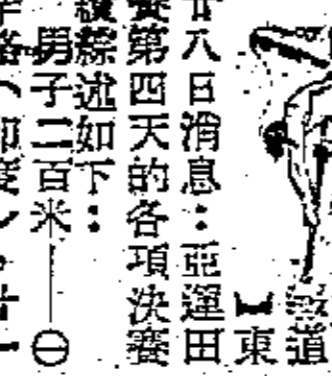 報道
】東
廿八日消息：亞運田
賽第四天的各項決賽
續綜述如下：
男子二百米——㊀